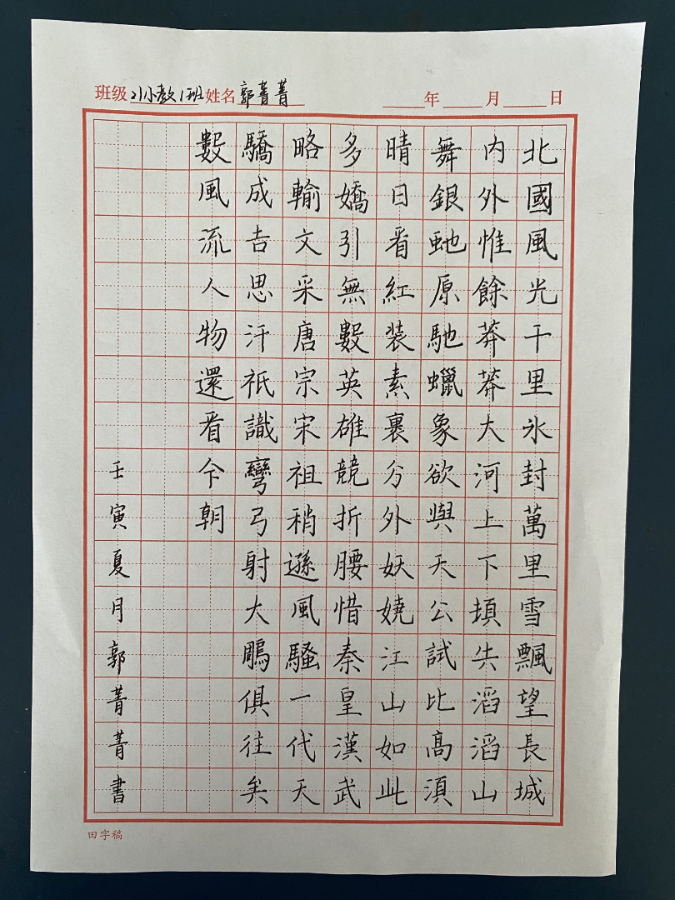 班级 21小教1班 姓名 郭菁菁 年 月 日
北國風光千里氷封萬里雪飄望長城
内外惟餘莽莽大河上下頓失滔滔山
舞銀虵原馳蠟象欲與天公試比高須
晴日看紅装素裹分外妖嬈江山如此
多嬌引無數英雄競折腰惜秦皇漢武
略輸文采唐宗宋祖稍遜風騷一代天
驕成吉思汗祇識彎弓射大鵰俱往矣
數風流人物還看今朝
壬寅夏月郭菁菁書
田字稿